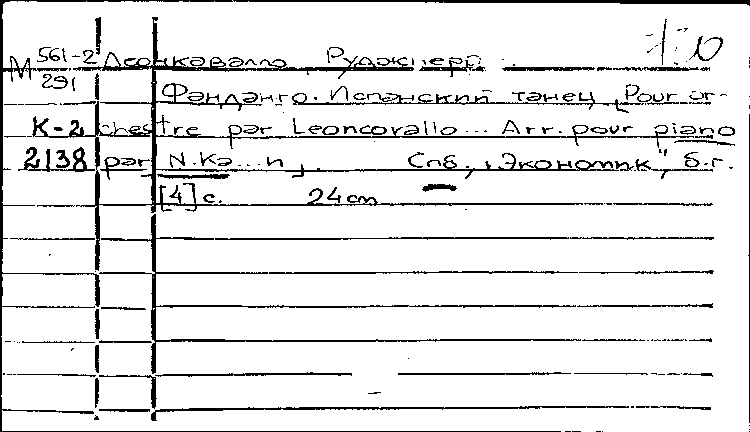 М 561-2 Леонкавалло, Руджиеро.
291
Фанданго. Испанский танец, [Pour or-
К-2 chestre par Leoncovallo... Arr. pour piano
2138 par N. Ka...n]. Спб., "Экономик", б.г.
[4] с. 24 cm